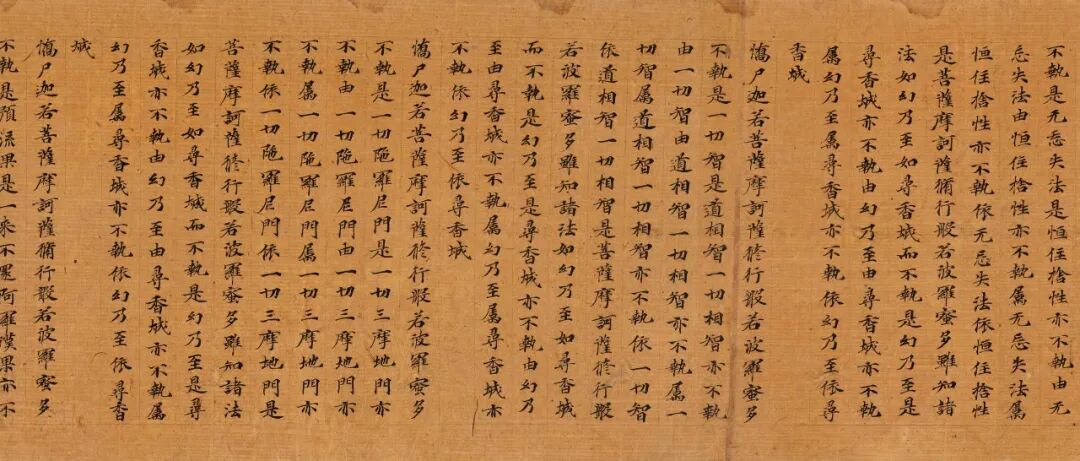 不執是无忘失法是恒住捨性亦不執由无
忘失法由恒住捨性亦不執属无忘失法属
恒住捨性亦不執依无忘失法依恒住捨性
是菩薩摩訶薩脩行般若波羅蜜多雖知諸
法如幻乃至如尋香城而不執是幻乃至是
尋香城亦不執由幻乃至由尋香城亦不執
属幻乃至属尋香城亦不執依幻乃至依尋
香城
憍尸迦若菩薩摩訶薩脩行般若波羅蜜多
不執是一切智是道相智一切相智亦不執
由一切智由道相智一切相智亦不執属一
切智属道相智一切相智亦不執依一切智
依道相智一切相智是菩薩摩訶薩脩行般
若波羅蜜多雖知諸法如幻乃至如尋香城
而不執是幻乃至是尋香城亦不執由幻乃
至由尋香城亦不執属幻乃至属尋香城亦
不執依幻乃至依尋香城
憍尸迦若菩薩摩訶薩脩行般若波羅蜜多
不執是一切陁羅尼門是一切三摩地門亦
不執由一切陁羅尼門由一切三摩地門亦
不執属一切陁羅尼門属一切三摩地門亦
不執依一切陁羅尼門依一切三摩地門是
菩薩摩訶薩脩行般若波羅蜜多雖知諸法
如幻乃至如尋香城而不執是幻乃至是尋
香城亦不執由幻乃至由尋香城亦不執属
幻乃至属尋香城亦不執依幻乃至依尋香
城
憍尸迦若菩薩摩訶薩脩行般若波羅蜜多
不執是預流果是一来不還阿羅漢果亦不